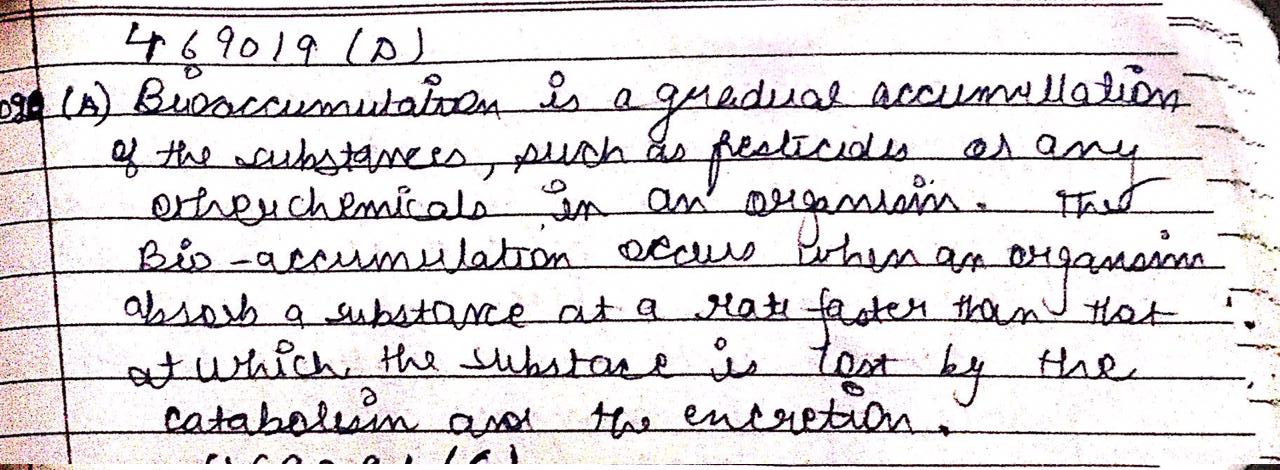 469019 (D)
(A) Bioaccumulation is a gredual accumullation
of the substances, such as pesticides or any
other chemicals in an organism. The
Bio-accumulation occurs when an organism
absorb a substance at a rate faster than that
at which the substace is lost by the
catabolism and the encretion.